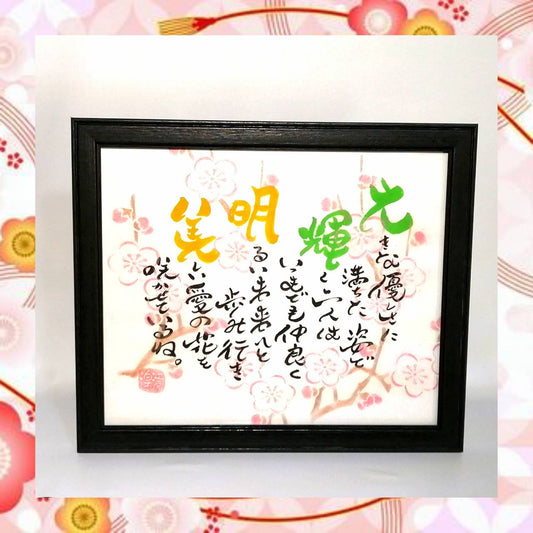 大きな優しさに
満ちた姿で
輝く二人は
いつまでも仲良く
明るい未来へと
歩み行き
美しい愛の花を
咲かせているね。